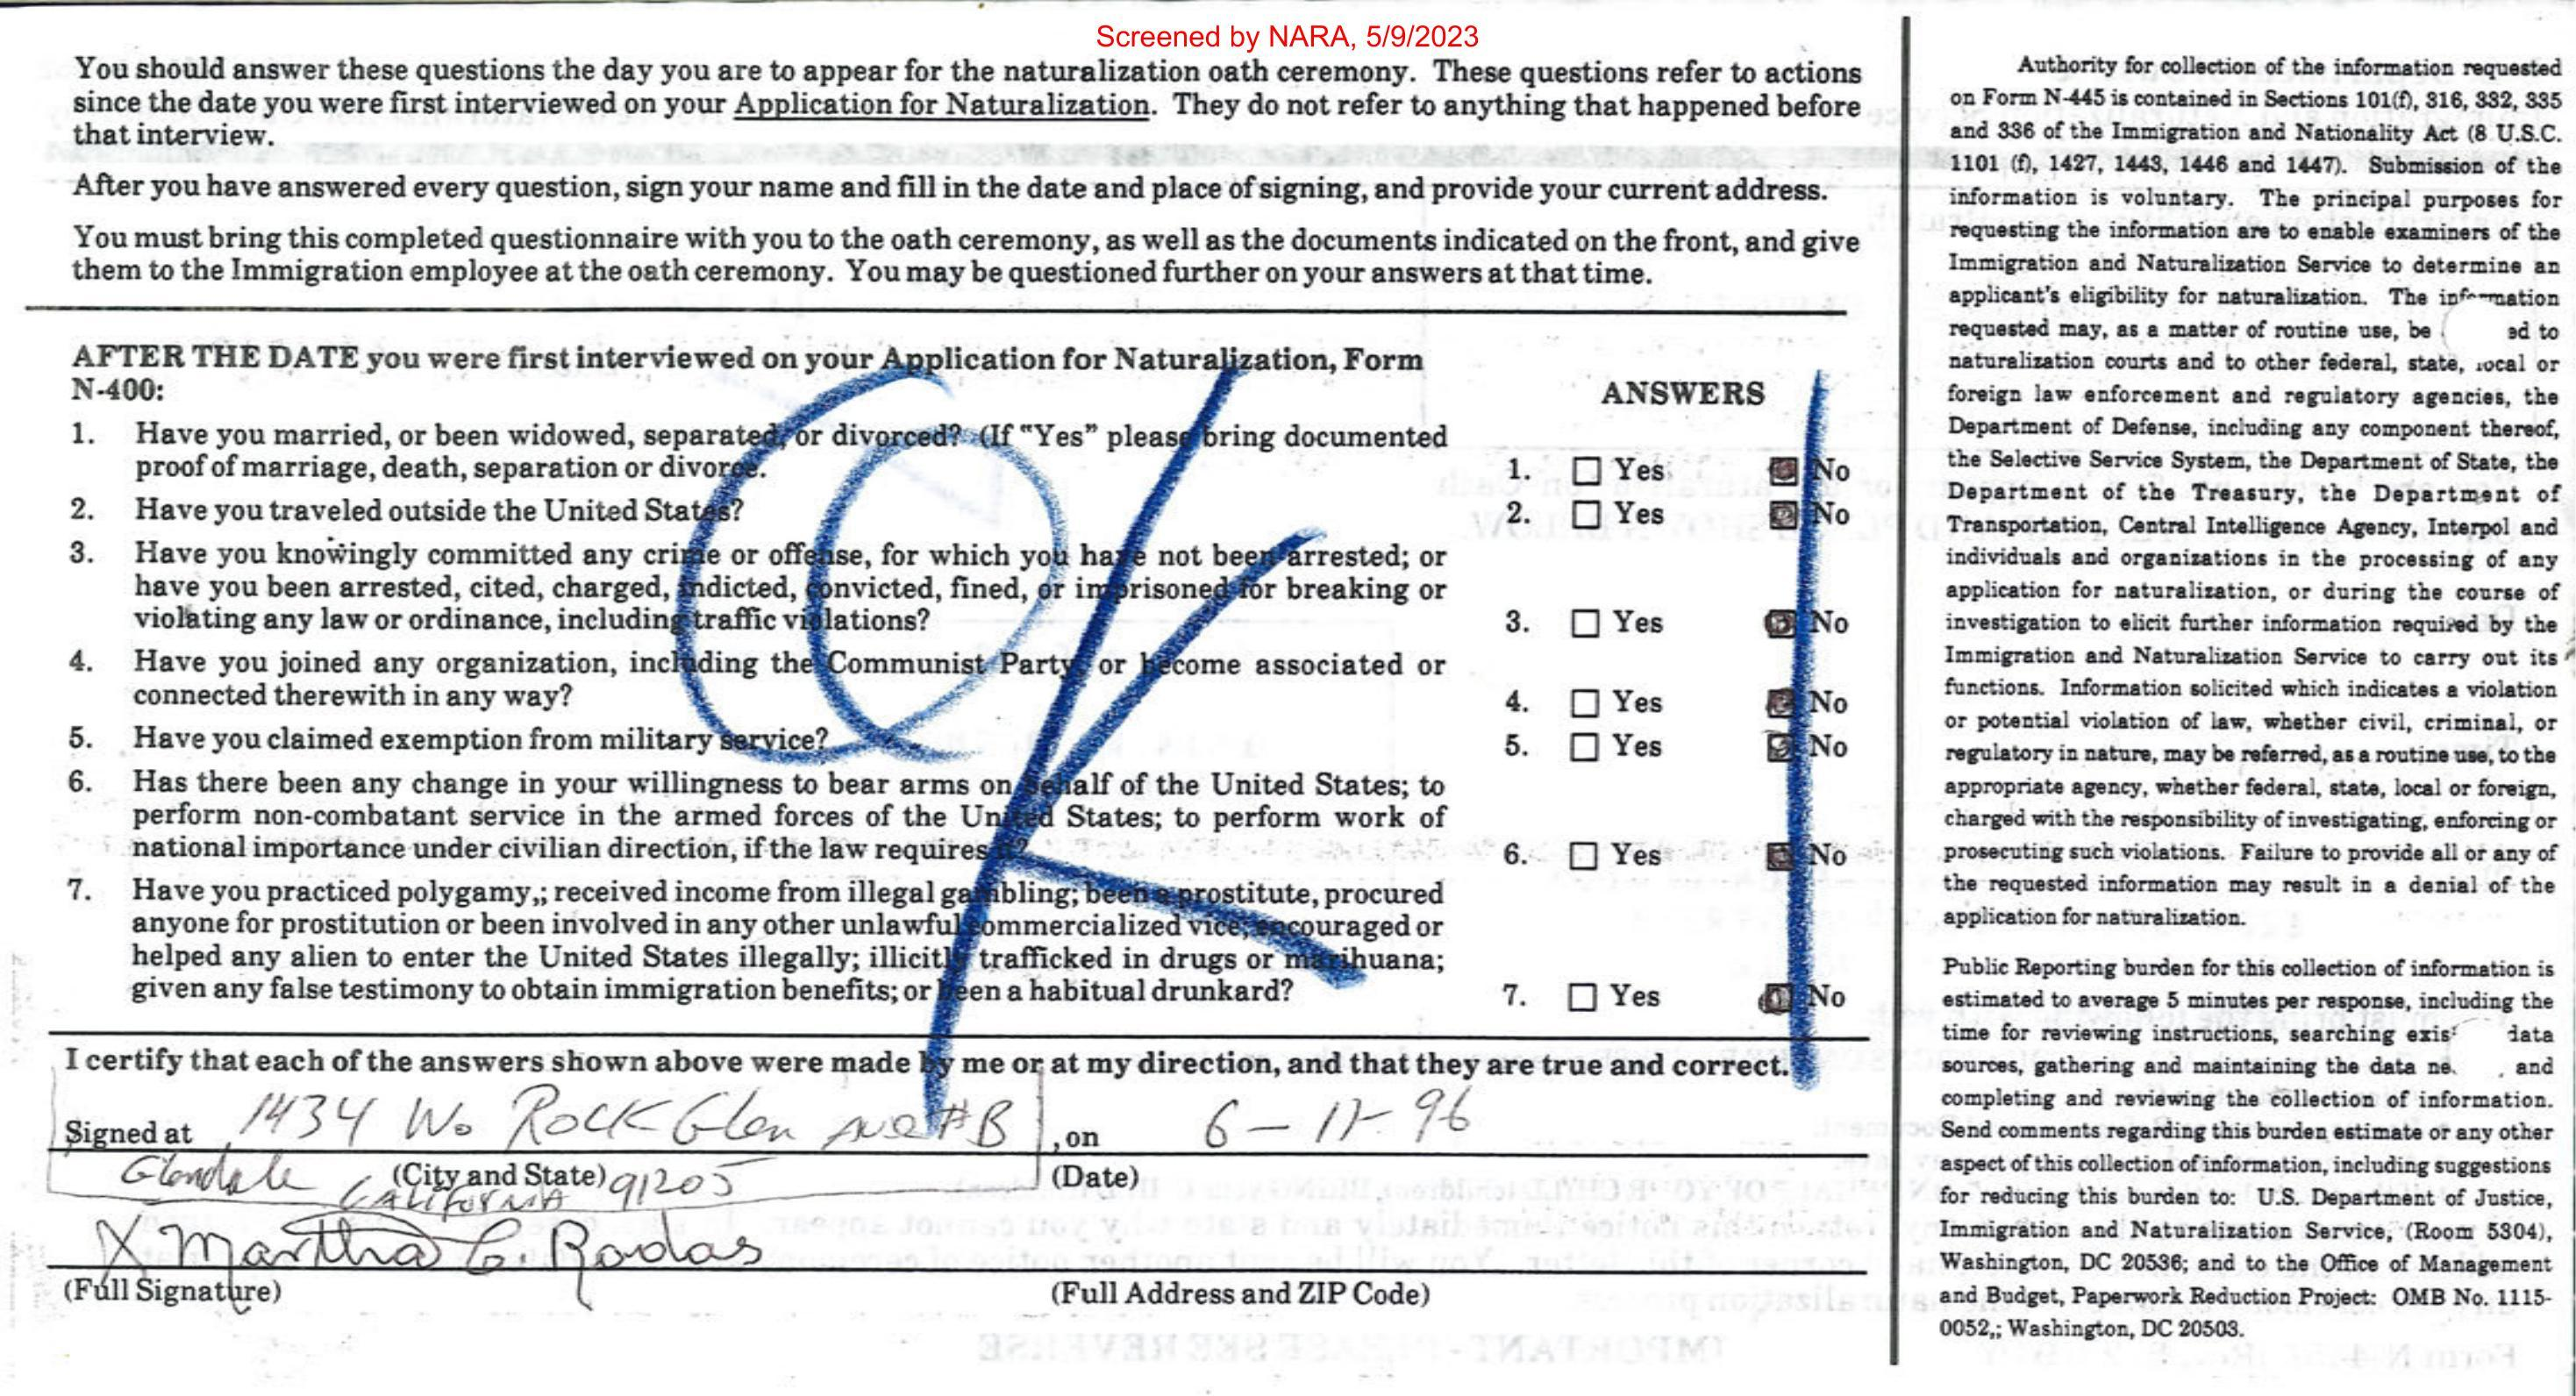 Screened by NARA, 5/9/2023
You should answer these questions the day you are to appear for the naturalization oath ceremony. These questions refer to actions
since the date you were first interviewed on your Application for Naturalization. They do not refer to anything that happened before
that interview.
After you have answered every question, sign your name and fill in the date and place of signing, and provide your current address.
You must bring this completed questionnaire with you to the oath ceremony, as well as the documents indicated on the front, and give
them to the Immigration employee at the oath ceremony. You may be questioned further on your answers at that time.
AFTER THE DATE you were first interviewed on your Application for Naturalization, Form
N-400:
ANSWERS
1. Have you married, or been widowed, separated, or divorced? (If "Yes" please bring documented
proof of marriage, death, separation or divorce.
1. Yes No
2. Have you traveled outside the United States?
2. Yes No
3. Have you knowingly committed any crime or offense, for which you have not been arrested; or
have you been arrested, cited, charged, indicted, convicted, fined, or imprisoned for breaking or
violating any law or ordinance, including traffic violations?
3. Yes No
4. Have you joined any organization, including the Communist Party, or become associated or
connected therewith in any way?
4. Yes No
5. Have you claimed exemption from military service?
5. Yes No
6. Has there been any change in your willingness to bear arms on behalf of the United States; to
perform non-combatant service in the armed forces of the United States; to perform work of
national importance under civilian direction, if the law requires it?
6. Yes No
7. Have you practiced polygamy,; received income from illegal gambling; been a prostitute, procured
anyone for prostitution or been involved in any other unlawful commercialized vice; encouraged or
helped any alien to enter the United States illegally; illicitly trafficked in drugs or marihuana;
given any false testimony to obtain immigration benefits; or been a habitual drunkard?
7. Yes No
OK
I certify that each of the answers shown above were made by me or at my direction, and that they are true and correct.
Signed at 1434 Wo Rock Glen Ave #B, on 6-17-96
(City and State) (Date)
Glendale CALIFORNIA 91205
X Martha C. Rodas
(Full Signature) (Full Address and ZIP Code)
Authority for collection of the information requested
on Form N-445 is contained in Sections 101(f), 316, 332, 335
and 336 of the Immigration and Nationality Act (8 U.S.C.
1101 (f), 1427, 1443, 1446 and 1447). Submission of the
information is voluntary. The principal purposes for
requesting the information are to enable examiners of the
Immigration and Naturalization Service to determine an
applicant's eligibility for naturalization. The information
requested may, as a matter of routine use, be ed to
naturalization courts and to other federal, state, local or
foreign law enforcement and regulatory agencies, the
Department of Defense, including any component thereof,
the Selective Service System, the Department of State, the
Department of the Treasury, the Department of
Transportation, Central Intelligence Agency, Interpol and
individuals and organizations in the processing of any
application for naturalization, or during the course of
investigation to elicit further information required by the
Immigration and Naturalization Service to carry out its
functions. Information solicited which indicates a violation
or potential violation of law, whether civil, criminal, or
regulatory in nature, may be referred, as a routine use, to the
appropriate agency, whether federal, state, local or foreign,
charged with the responsibility of investigating, enforcing or
prosecuting such violations. Failure to provide all or any of
the requested information may result in a denial of the
application for naturalization.
Public Reporting burden for this collection of information is
estimated to average 5 minutes per response, including the
time for reviewing instructions, searching exis data
sources, gathering and maintaining the data ne , and
completing and reviewing the collection of information.
Send comments regarding this burden estimate or any other
aspect of this collection of information, including suggestions
for reducing this burden to: U.S. Department of Justice,
Immigration and Naturalization Service, (Room 5304),
Washington, DC 20536; and to the Office of Management
and Budget, Paperwork Reduction Project: OMB No. 1115-
0052,; Washington, DC 20503.